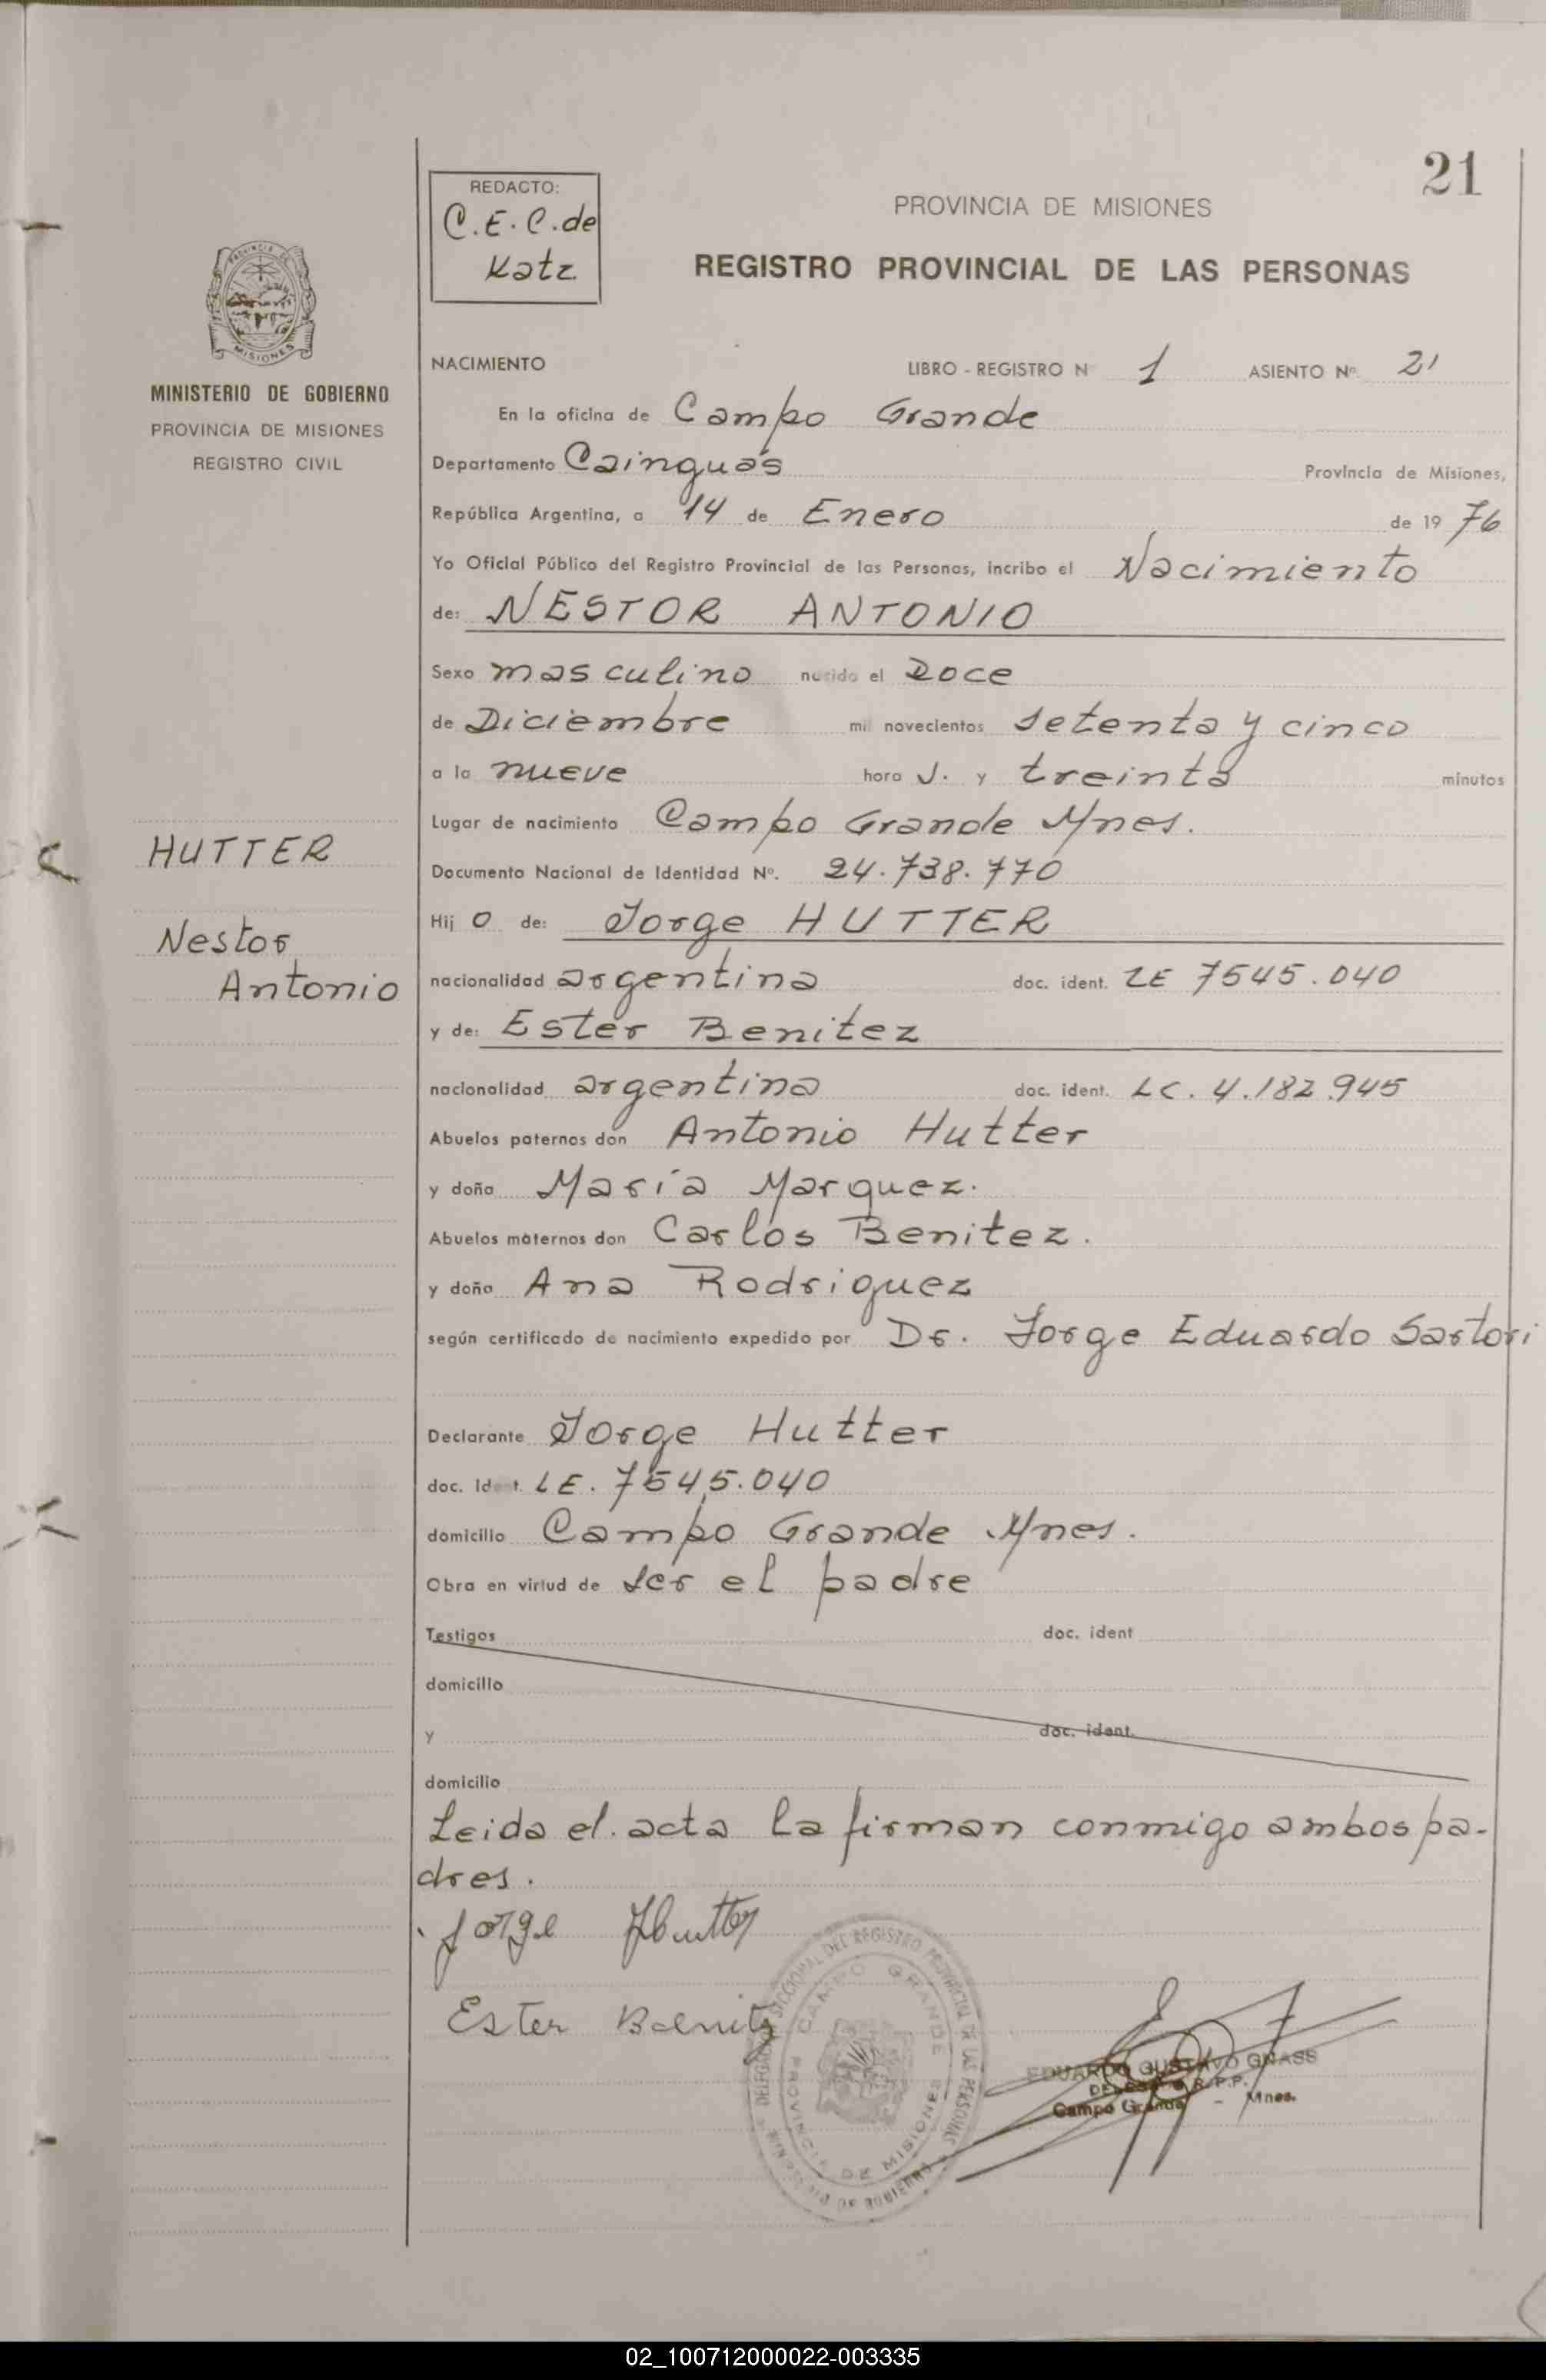 21
REDACTO:
C.E.C. de
Katz
PROVINCIA DE MISIONES
REGISTRO PROVINCIAL DE LAS PERSONAS
MISIONES
MINISTERIO DE GOBIERNO
PROVINCIA DE MISIONES
REGISTRO CIVIL
NACIMIENTO LIBRO - REGISTRO N 1 ASIENTO Nº. 21
En la oficina de Campo Grande
Departamento Cainguás Provincia de Misiones,
República Argentina, a 14 de Enero de 19 76
Yo Oficial Público del Registro Provincial de las Personas, incribo el Nacimiento
de: NESTOR ANTONIO
Sexo masculino nacido el Doce
de Diciembre mil novecientos setenta y cinco
a la nueve hora s. y treinta minutos
Lugar de nacimiento Campo Grande Mnes.
Documento Nacional de Identidad Nº. 24.738.770
HUTTER
Nestor
Antonio
Hij o de: Jorge HUTTER
nacionalidad argentina doc. ident. LE 7545.040
y de: Ester Benitez
nacionalidad argentina doc. ident. LC. 4.182.945
Abuelos paternos don Antonio Hutter
y doña María Marquez.
Abuelos maternos don Carlos Benitez.
y doña Ana Rodriguez
según certificado de nacimiento expedido por Dr. Jorge Eduardo Sartori
Declarante Jorge Hutter
doc. Ident. LE. 7545.040
domicilio Campo Grande Mnes.
Obra en virtud de ser el padre
Testigos doc. ident
domicilio
y doc. ident.
domicilio
Leida el acta la firman conmigo ambos pa-
dres.
Jorge Hutter
Ester Benitz
DELEGACION SECCIONAL DEL REGISTRO PROVINCIAL DE LAS PERSONAS
CAMPO GRANDE
PROVINCIA DE MISIONES
EDUARDO GUSTAVO GNASS
R.P.P.
Campo Grande - Mnes.
02_100712000022-003335